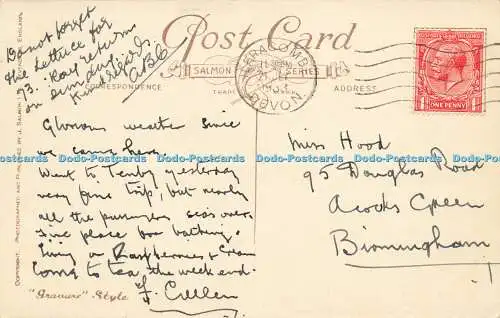 Do not forget
the Lettuce for
73. Ray returns
on Sunday.
Kind regards
Post Card
SALMON SERIES
TRADE
CORRESPONDENCE
ADDRESS
ILFRACOMBE
DEVON
POSTAGE REVENUE
ONE PENNY
Glorious weather since
we came here.
Went to Tenby yesterday
very fine trip, but nearly
all the passengers seas over.
Fine place for bathing.
Living on Raspberries & Cream
Come to tea the week end.
F. Cullen
Miss Hood
95 Douglas Road
Acocks Green
Birmingham
"Gravure" Style
COPYRIGHT. PHOTOGRAPHED AND PUBLISHED BY J. SALMON ENGLAND.
Dodo-Postcards Dodo-Postcards Dodo-Postcards Dodo-Postcards Dodo-Postcards Dodo-Postcards